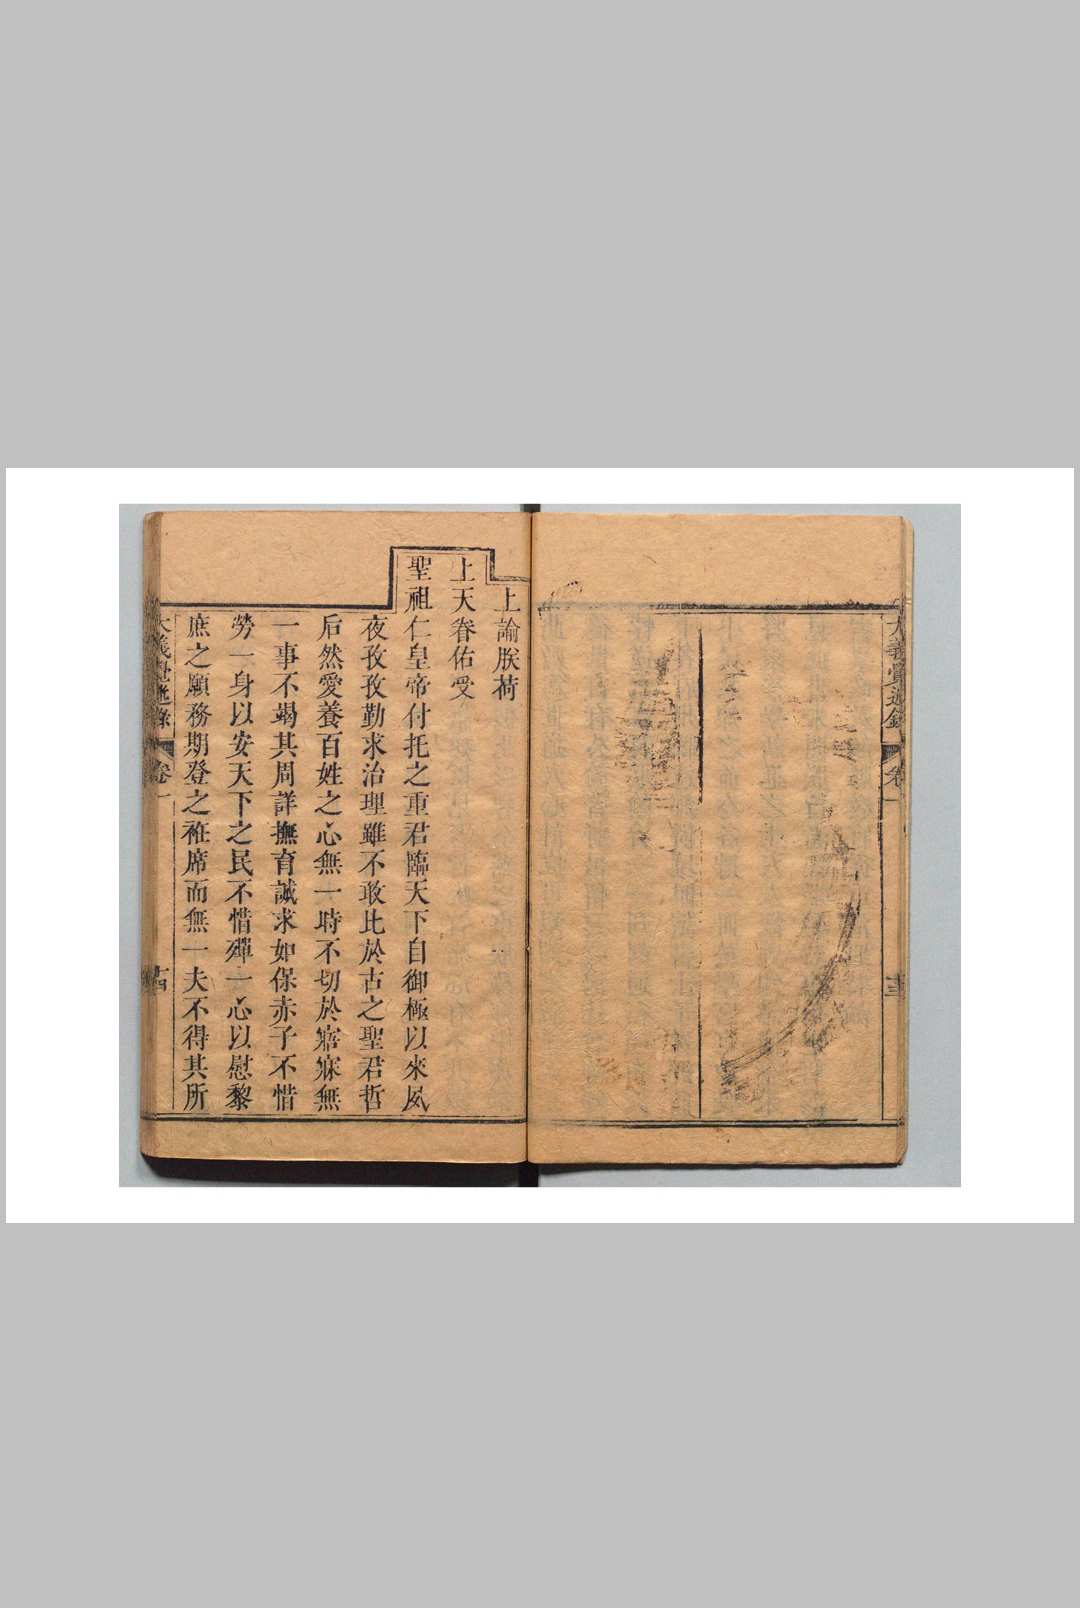 大義覺迷錄 卷一 十三
上諭朕荷
上天眷佑受
聖祖仁皇帝付托之重君臨天下自御極以來夙
夜孜孜勤求治理雖不敢比於古之聖君哲
后然愛養百姓之心無一時不切於寤寐無
一事不竭其周詳撫育誠求如保赤子不惜
勞一身以安天下之民不惜殫一心以慰黎
庶之願務期登之袵席而無一夫不得其所
大義覺迷錄 卷一 十四